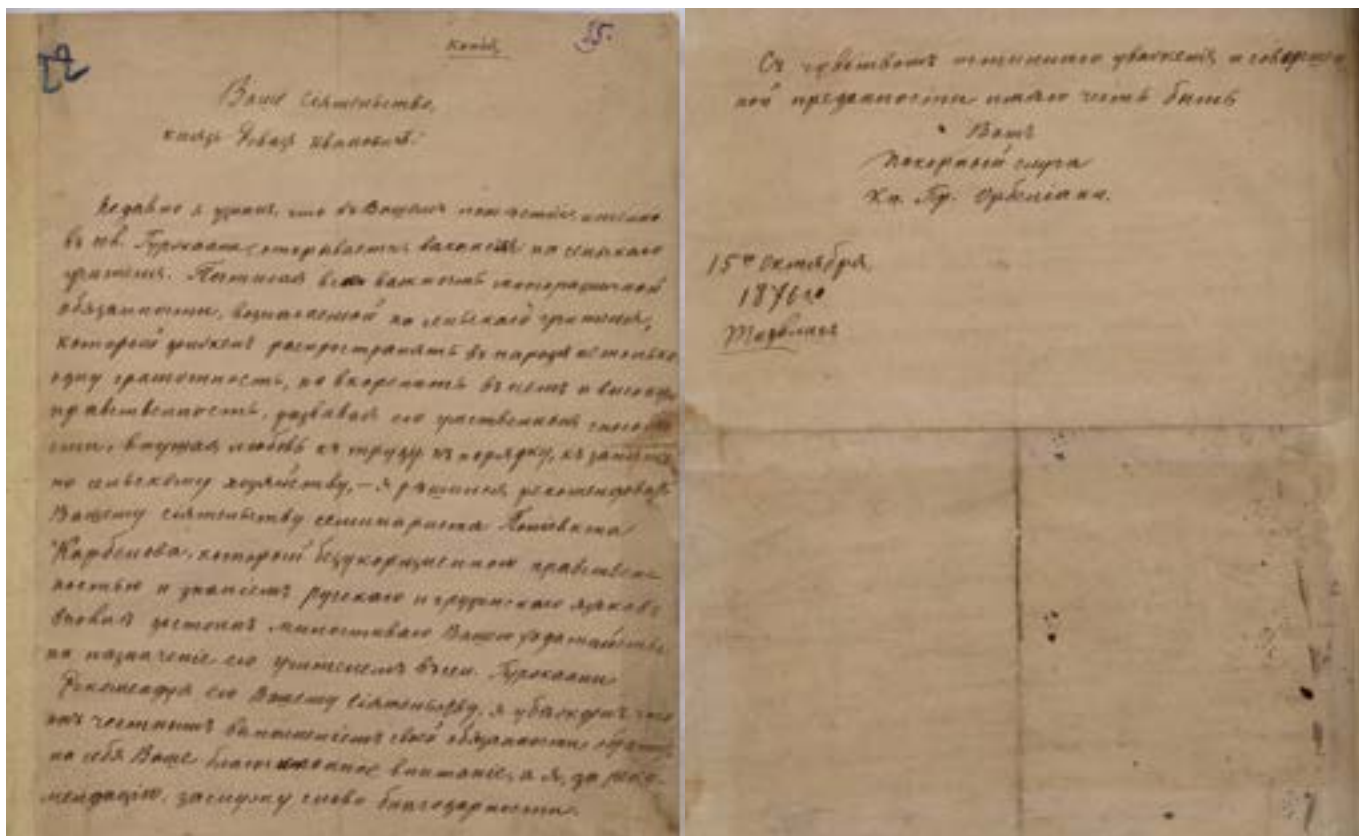 Копія
25.
Ваше сіятельство,
князь Реваз Ивановичъ!
Недавно я узналъ, что въ Вашемъ именно
въ св. Гурокаани, открывается вакансія на сельскаго
учителя. Постигая всю важность многотрудной
обязанности, возлагаемой на сельскаго учителя,
который долженъ распространять въ народѣ не только
одну грамотность, но вкоренять въ немъ и высокую
нравственность, развивая его умственныя способно
сти, внушая любовь къ труду, къ порядку, къ занятію
по сельскому хозяйству, — я рѣшился рекомендовать
Вашему сіятельству семинариста
Карбелова, который безукоризненною нравствен
ностью и знаніемъ русскаго и грузинскаго языковъ
вполнѣ достоинъ милостиваго Вашего ходатайства
на назначеніе его учителемъ въ сел. Гурокаани
Рекомендуя его Вашему Сіятельству, я убѣжденъ что
онъ честнымъ выполненіемъ своей обязанности обратитъ
на себя Ваше благосклонное вниманіе, а я, за реко-
мендацію, заслужу слово благодарности.
Съ чувствомъ истиннаго уваженія и совершен
ной преданности имѣю честь быть
Вашъ
Покорный слуга
Кн. Гр. Орбеліани.
15го Октября
1876го
Тифлисъ